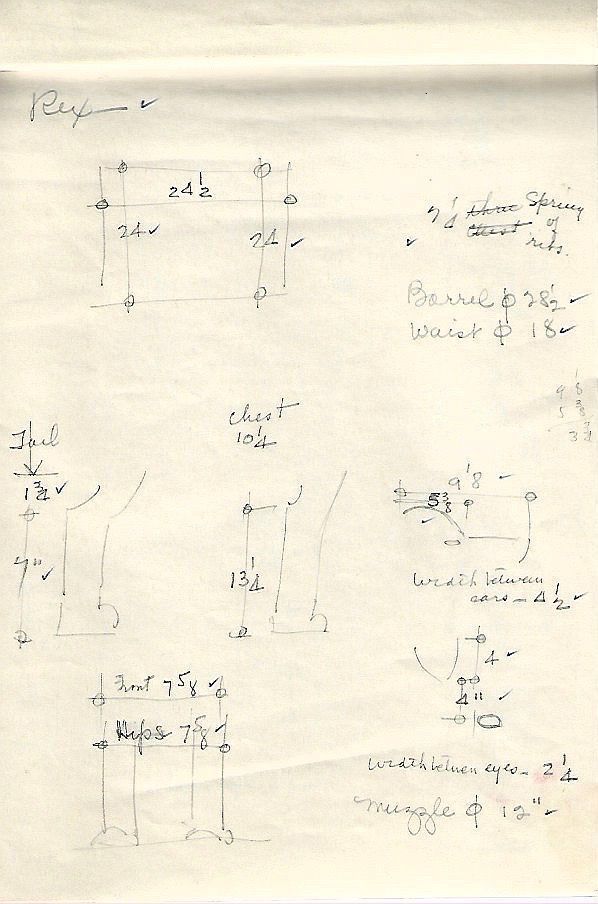 Rex ✓
24 1/2
24 ✓ 24 ✓
✓ 7 1/2 three Spring
Chest of
ribs.
Barrel ϕ 28 1/2 ✓
Waist ϕ 18 ✓
9 1/8
5 3/8
3 3/4
Tail
Chest
10 1/4
1 3/4 ✓
9 1/8 ✓
5 3/8
✓
7" ✓
13 1/4
Width between
ears – 4 1/2 ✓
4 ✓
4" ✓
Front 7 5/8 ✓
Hips 7 5/8 ✓
Width between eyes – 2 1/4
Muzzle ϕ 12" ✓